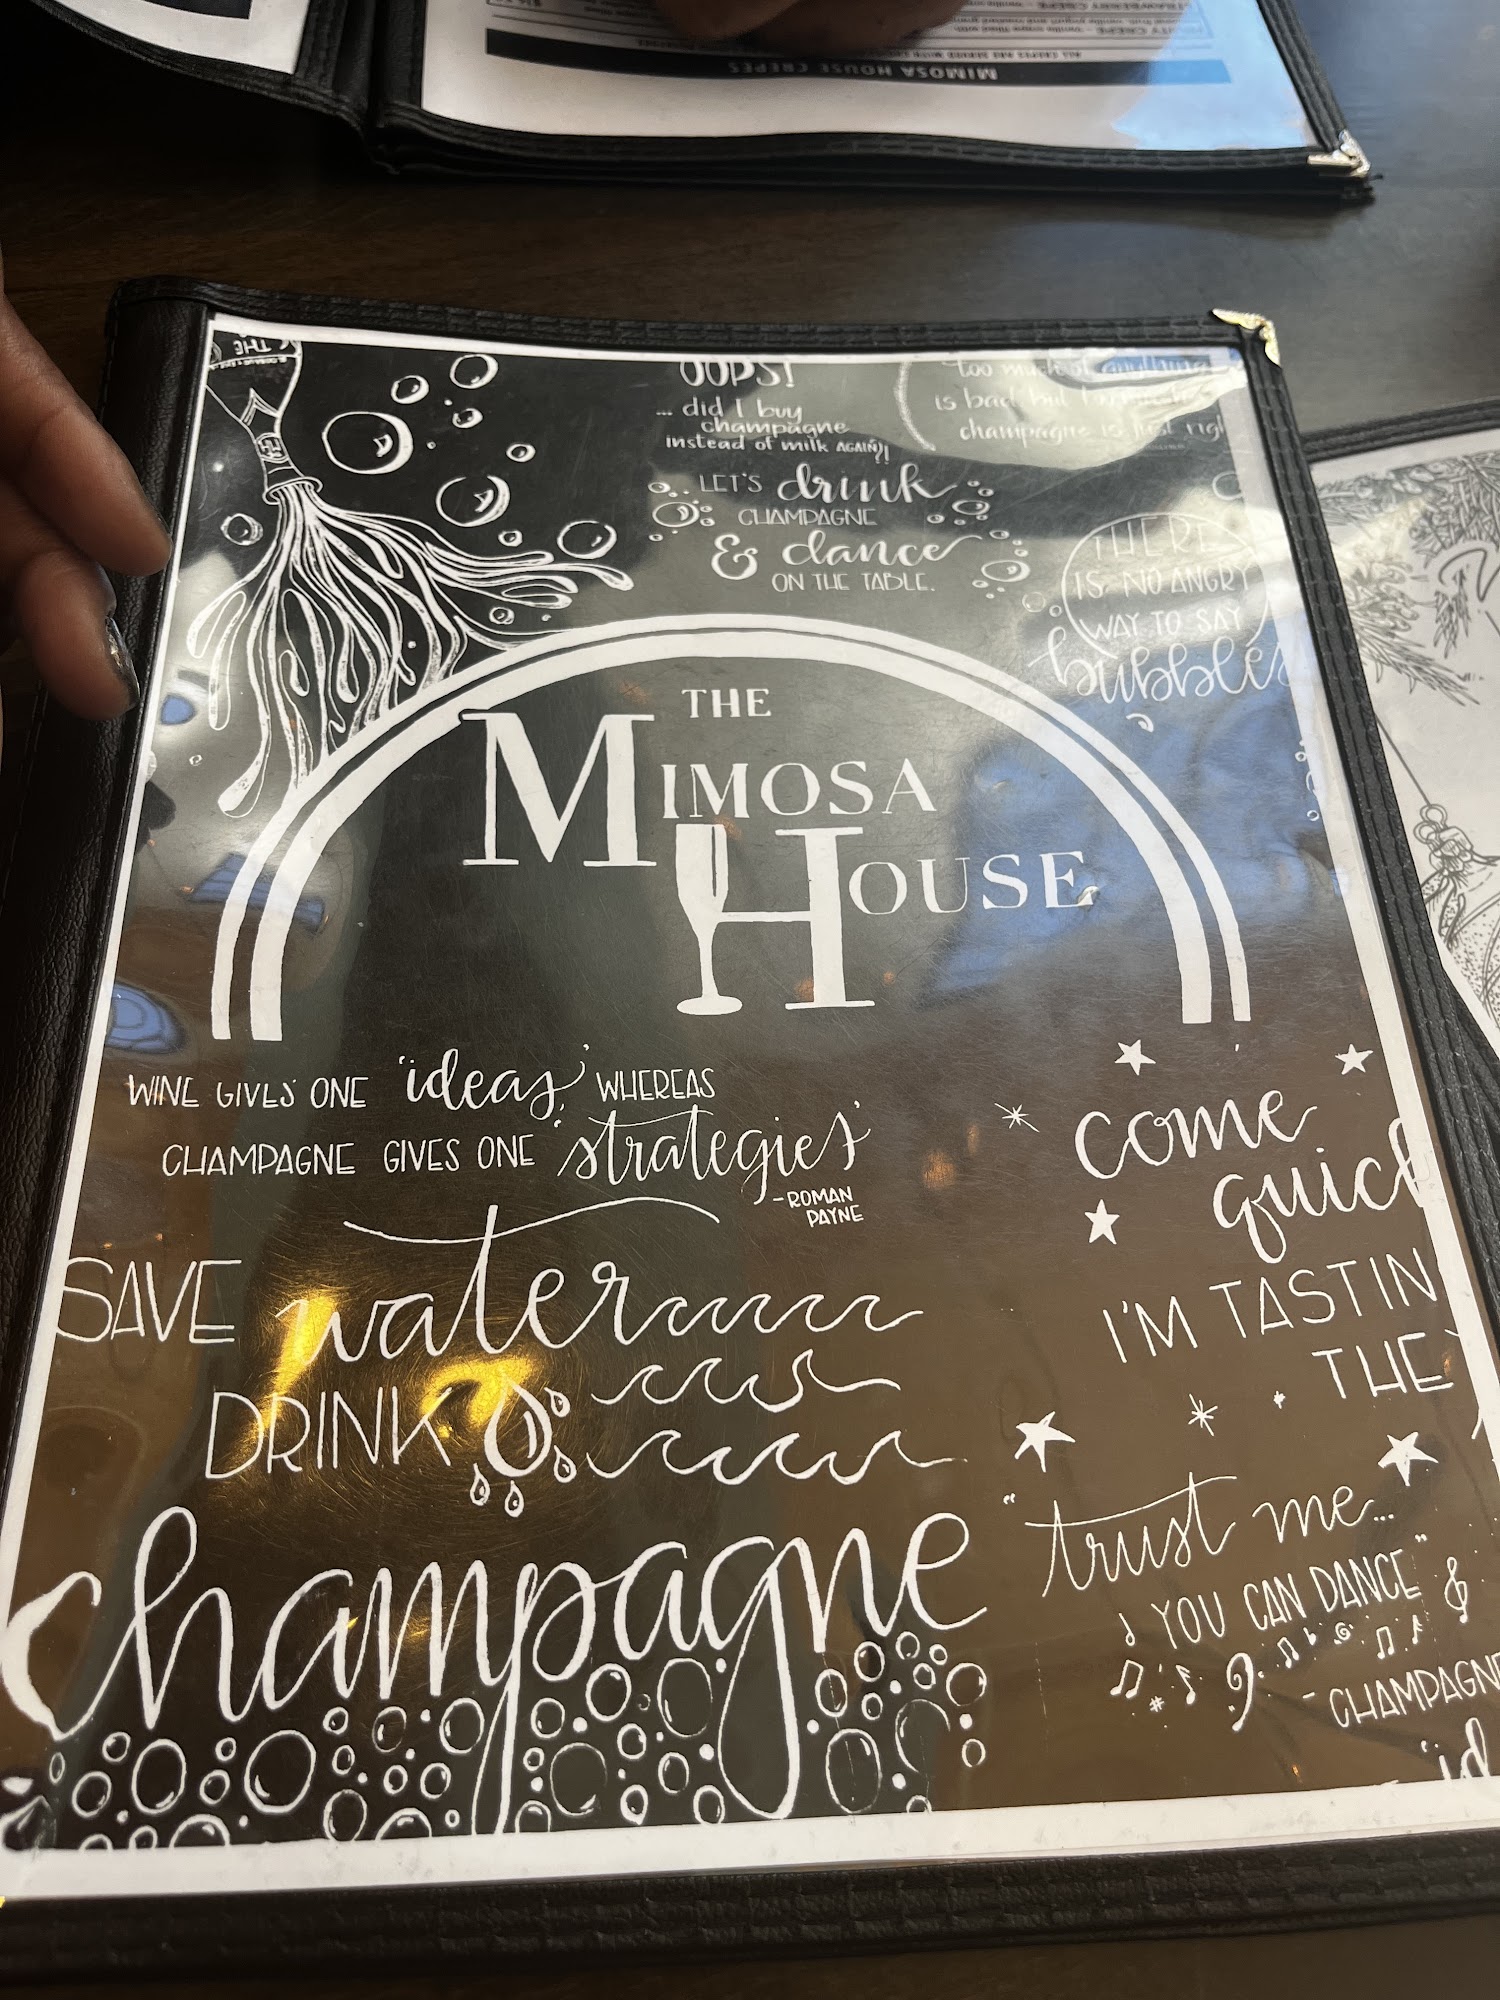 MIMOSA HOUSE CREPES
THE
OOPS!
... did I buy
champagne
instead of milk AGAIN?!
too much of anything
is bad but
champagne is just righ
LET'S drink
CHAMPAGNE
& dance
ON THE TABLE.
THERE
IS NO ANGRY
WAY TO SAY
bubbles
THE
MIMOSA
HOUSE
WINE GIVES ONE 'ideas,' WHEREAS
CHAMPAGNE GIVES ONE 'strategies'
-ROMAN
PAYNE
SAVE water
DRINK
champagne
come
quick
I'M TASTIN
THE
"trust me...
YOU CAN DANCE"
- CHAMPAGN
'id